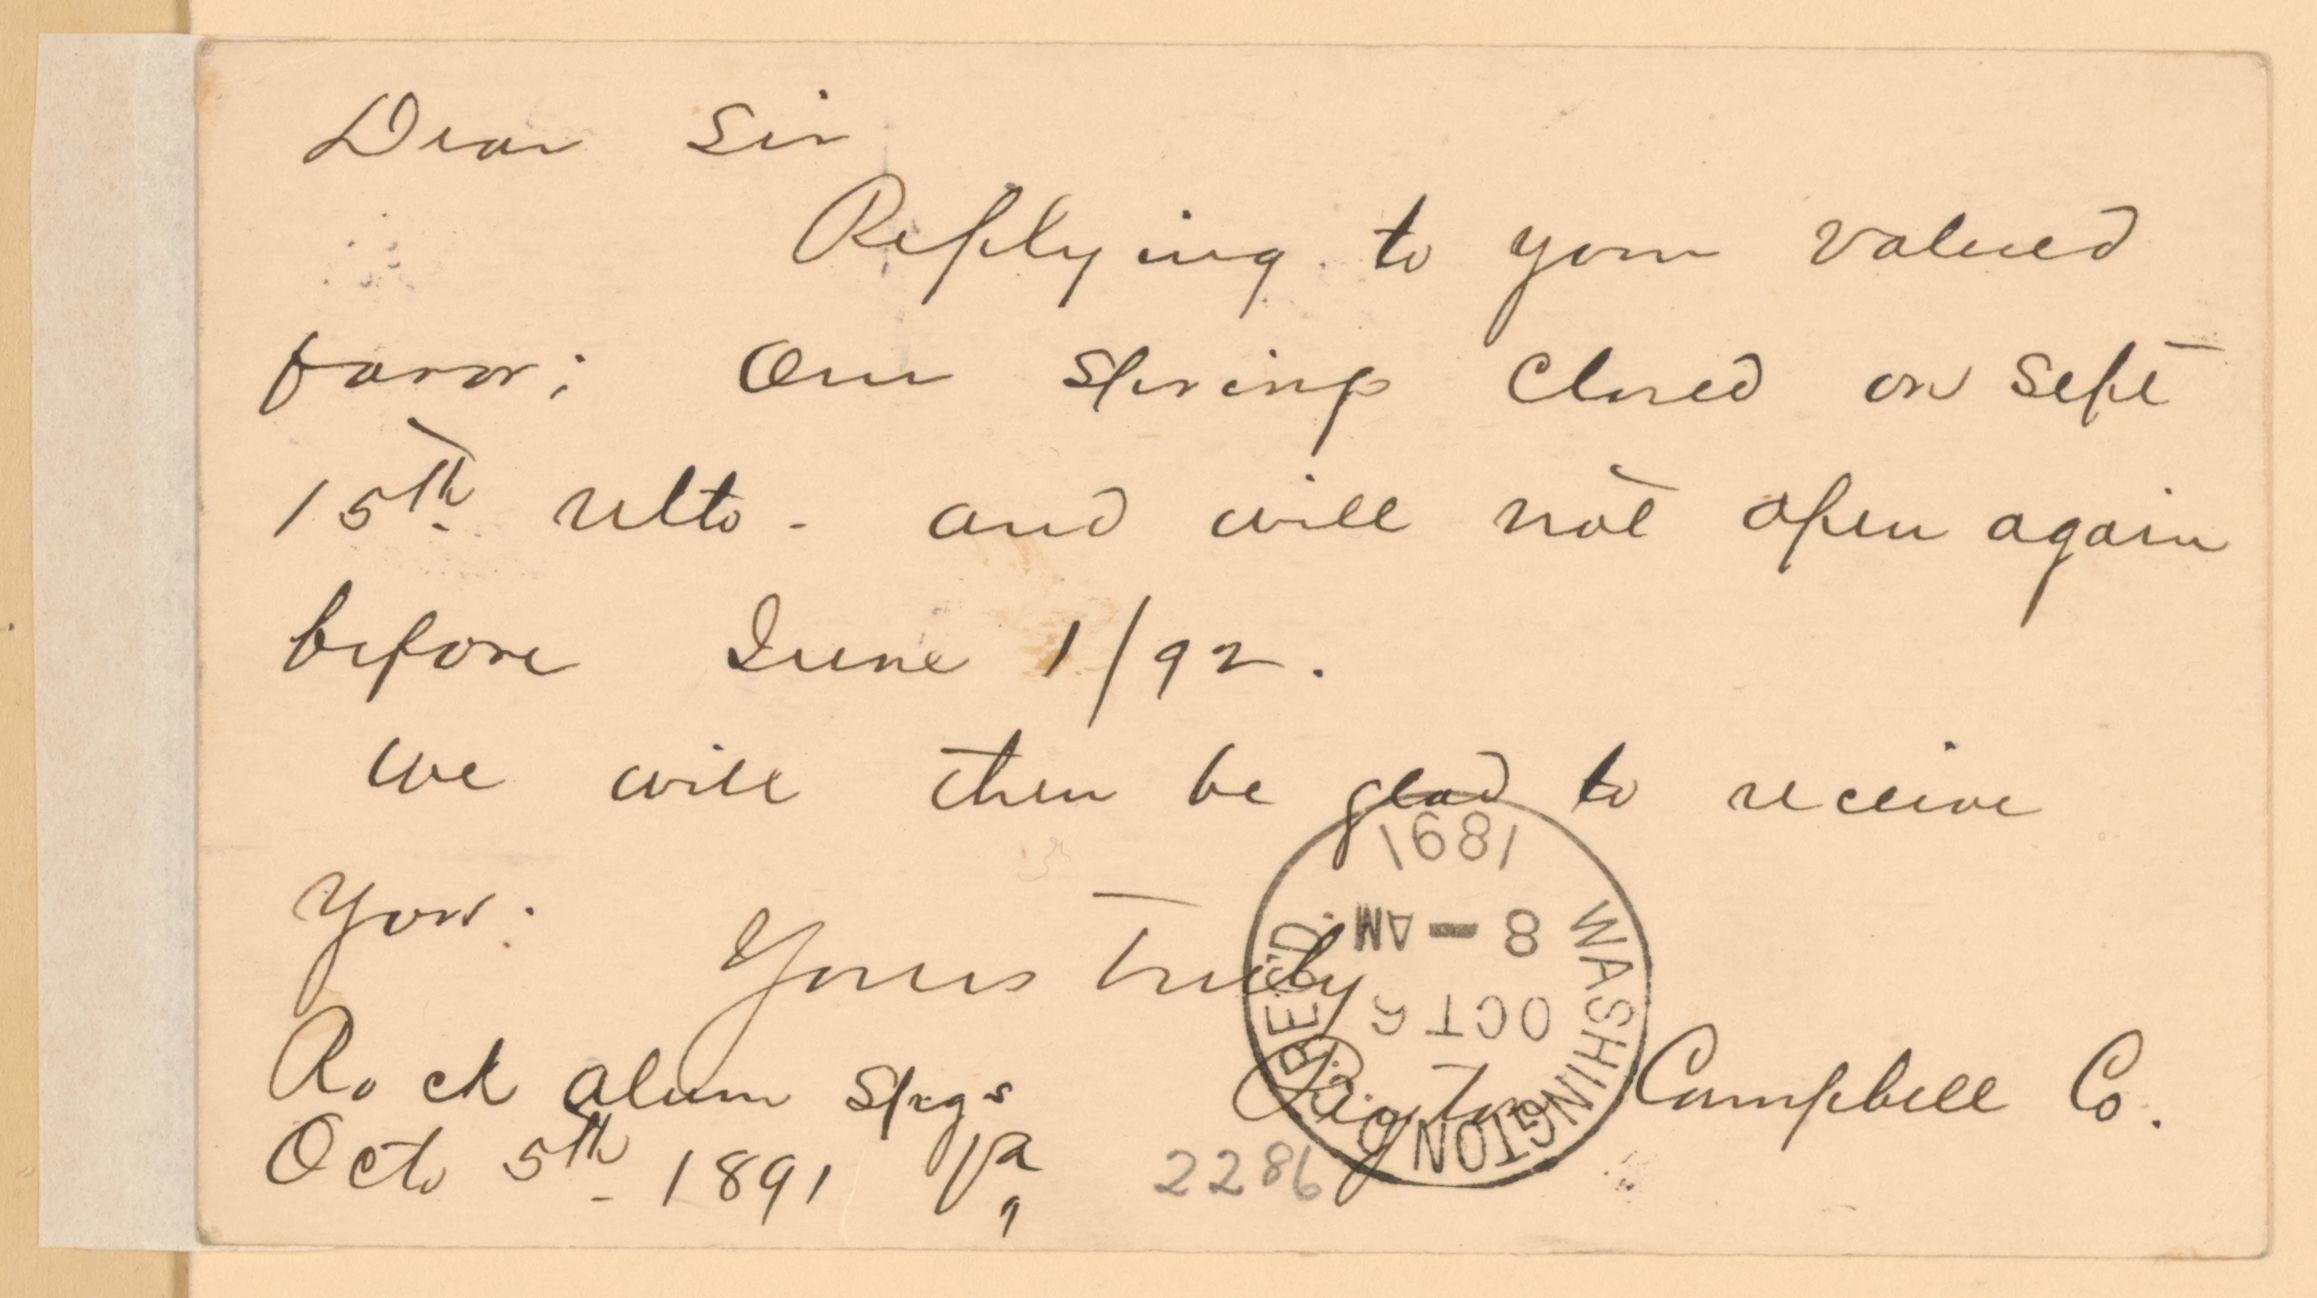 Dear Sir
Replying to your valued
favor; Our Springs closed on Sept
15th ulto - and will not open again
before June 1/92.
we will then be glad to receive
you.
Yours truly
Rock Alum Spgs
Campbell Co.
Octo 5th 1891 Va,
2286
WASHINGTON D.C. REC'D.
OCT 6
8 - AM
1891